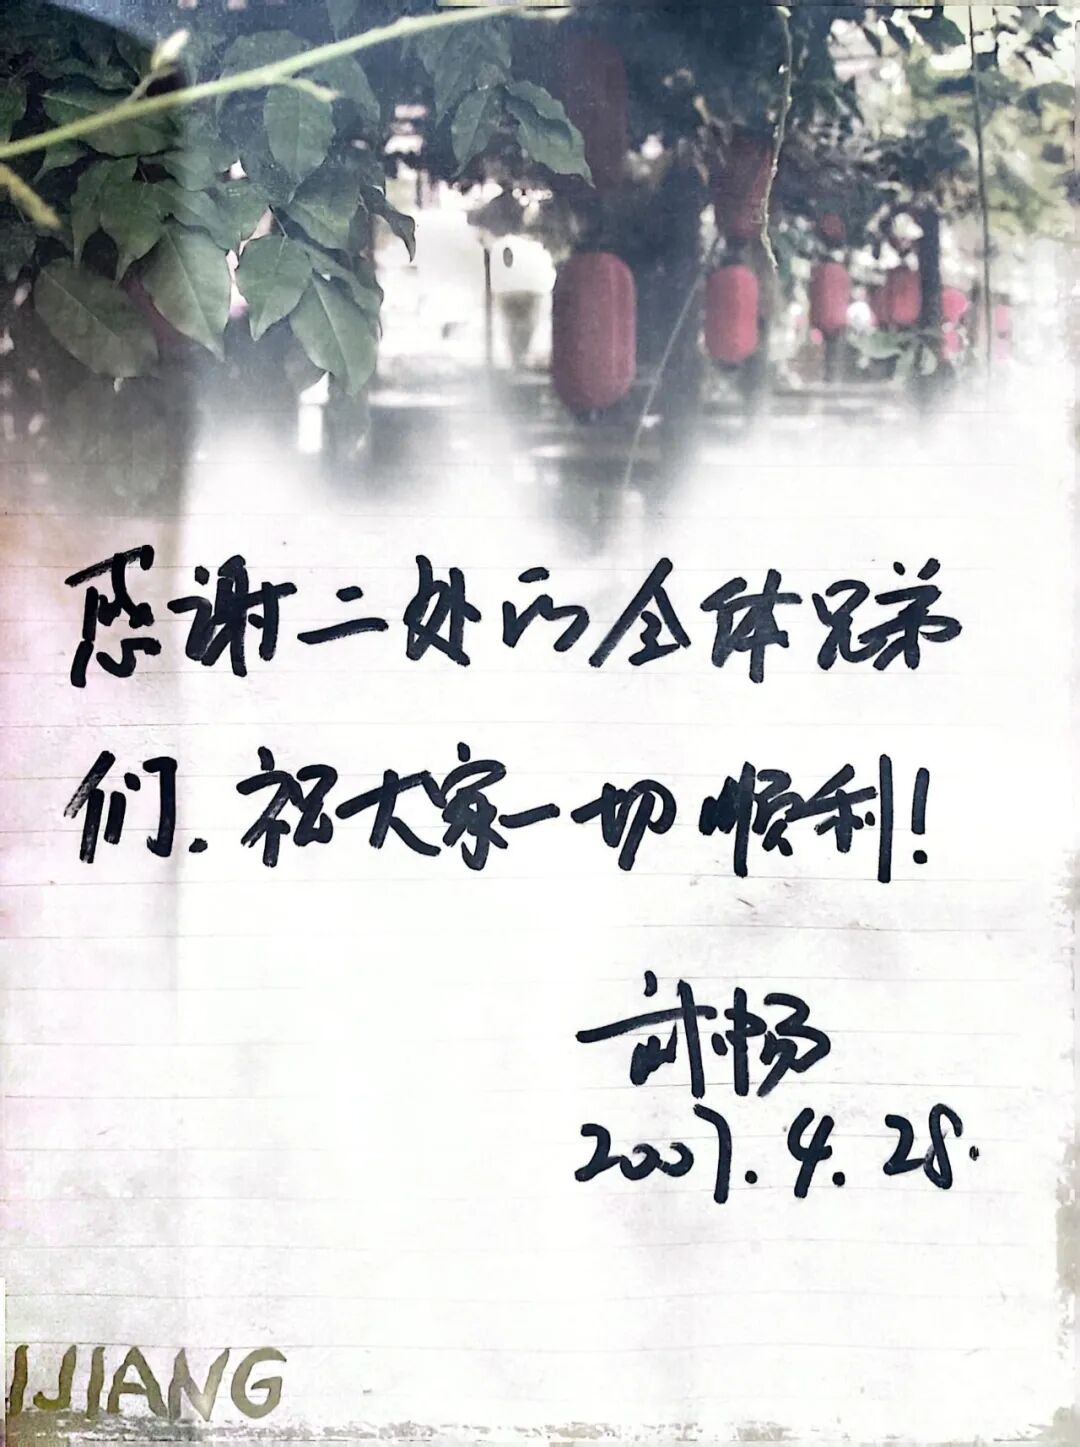 感谢二处的全体兄弟
们.祝大家一切顺利!
武畅
2007.4.28.
IJIANG